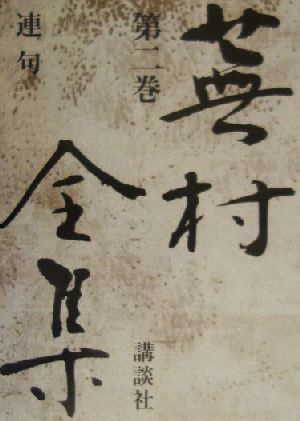 蕪村
全集
第二巻
連句
講談社